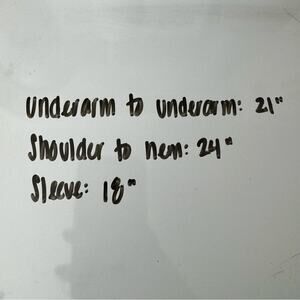 underarm to underarm: 21"
Shoulder to hem: 24"
Sleeve: 18"